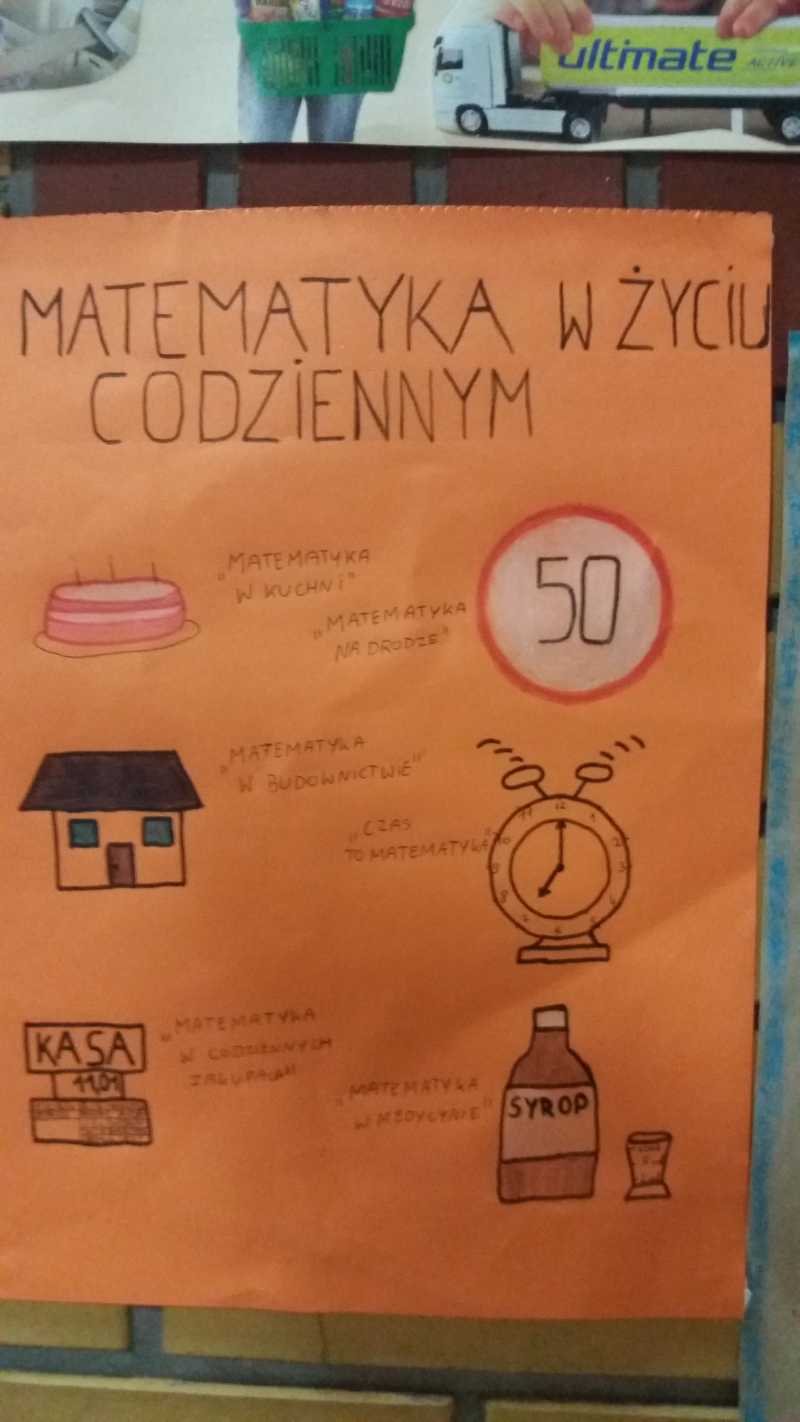 ultimate
ACTIVE
MATEMATYKA W ŻYCIU
CODZIENNYM
"MATEMATYKA
W KUCHNI"
"MATEMATYKA
NA DRODZE"
50
"MATEMATYKA
W BUDOWNICTWIE"
"CZAS
TO MATEMATYKA"
12
1
2
3
4
5
6
7
8
9
10
11
KASA
11,01
"MATEMATYKA
W CODZIENNYCH
ZAKUPACH"
"MATEMATYKA
W MEDYCYNIE"
SYROP